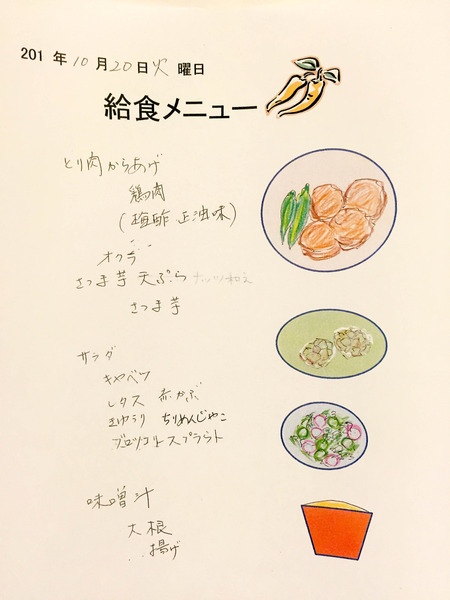 201 年 10 月 20 日 火 曜日
給食メニュー
とり肉からあげ
鶏肉
(梅酢 正油味)
オクラ
さつま芋 天ぷら ナッツ和え
さつま芋
サラダ
キャベツ
レタス 赤かぶ
きゅうり ちりめんじゃこ
ブロッコリースプラウト
味噌汁
大根
揚げ